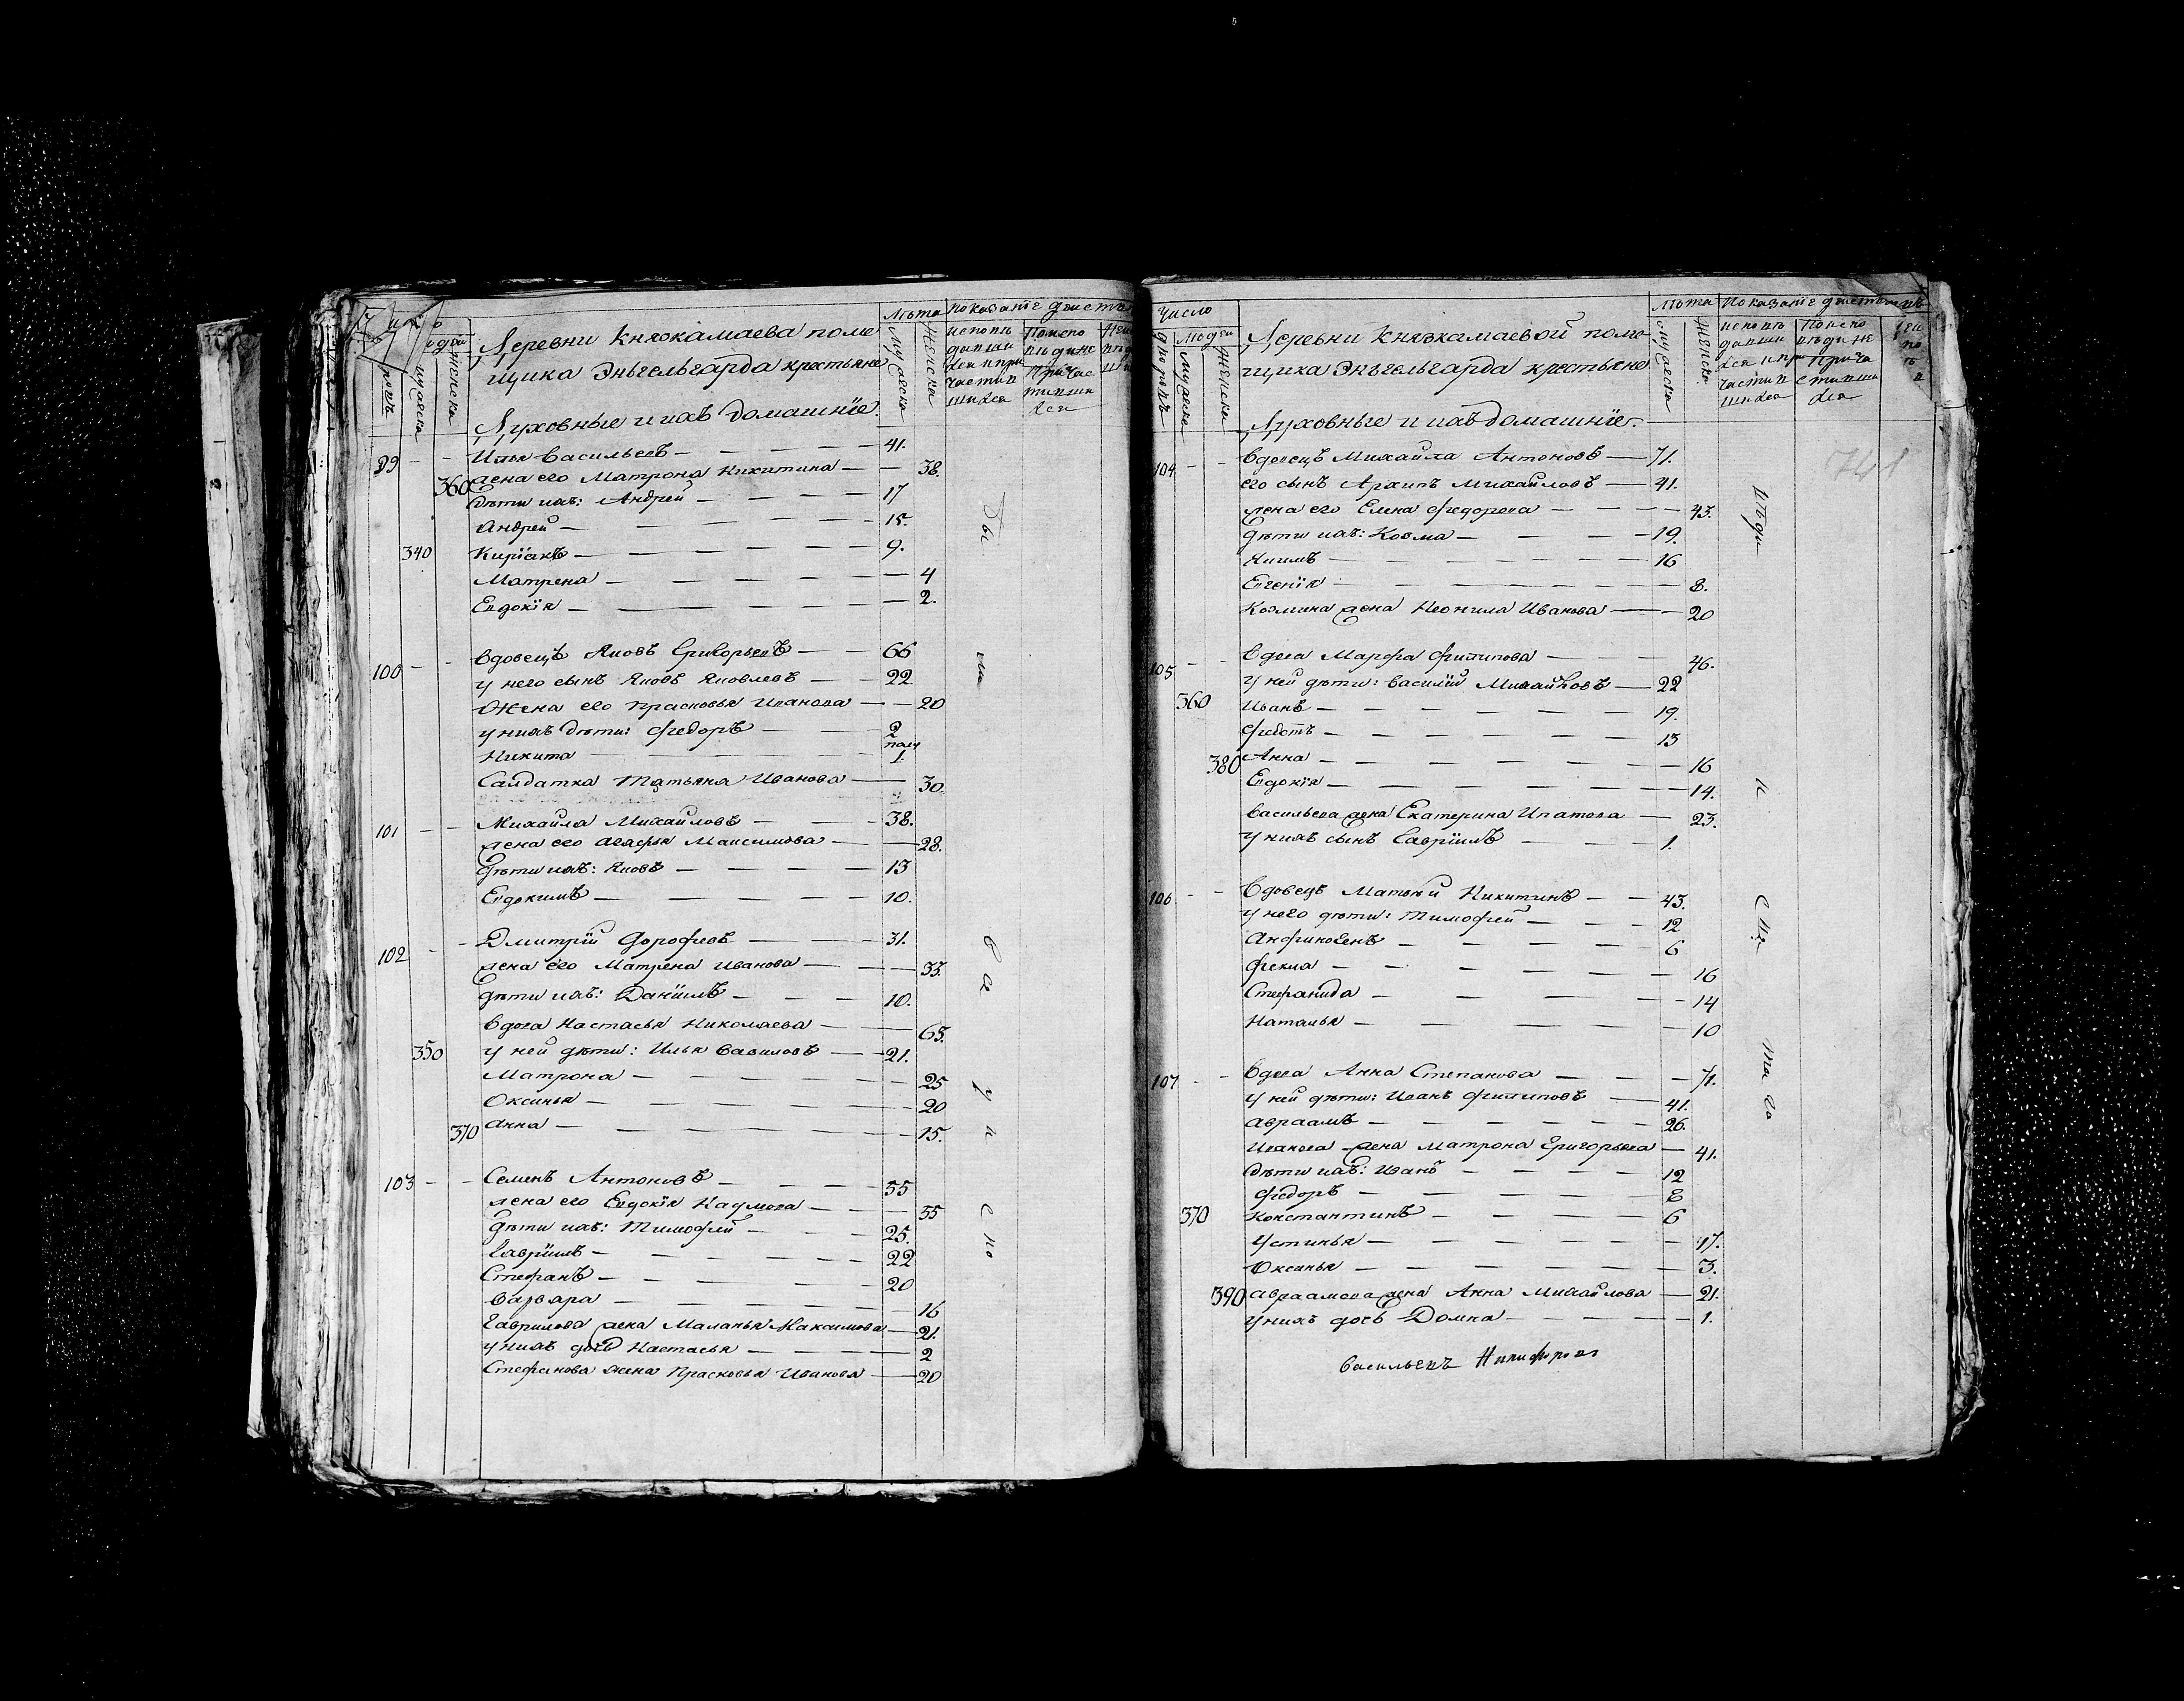 Число
людей
дворовъ
мужеска
женска
Деревни Княжкамаева поме
щика Энъгельгарда крестьяне
Духовные и ихъ домашнїе.
Лѣта
мужеска
женска
Показанїе дѣиств
исповѣ
давши
ся и при
части в
шихся
По испо
вѣди не
причас
тивши
ся
99 Илья Васильевъ 41.
жена его Матрона Никитина 38.
360 дѣти ихъ: Андрей 17
Андрей 15.
340 Кирїакъ 9.
Матрена 4
Евдокїя 2.
100 вдовецъ Яковъ Григорьевъ 66
у него сынъ Яковъ Яковлевъ 22
Жена его Прасковья Иванова 20
у нихъ дѣти: Федоръ 2
Никита пол 1.
Салдатка Татьяна Иванова 30.
101 Михайла Михайловъ 38.
жена его Агафья Максимова 28.
дѣти ихъ: Яковъ 13
Евдокимъ 10.
102 Дмитрїй Дорофеевъ 31.
жена его Матрена Иванова 33.
дѣти ихъ: Данїилъ 10.
вдова Настасья Николаева 63.
350 у ней дѣти: Илья Вавиловъ 21.
Матрона 25
Оксинья 20
370 Анна 15.
103 Семенъ Антоновъ 55
жена его Евдокїя Наумова 55
дѣти ихъ: Тимофей 25.
Гаврїилъ 22
Стефанъ 20
Варвара 16
Гаврилова жена Маланья Максимова 21.
у нихъ дочь Настасья 2
Стефанова жена Прасковья Иванова 20
Бы
ли
во
у
и
с
по
Число
людей
дворовъ
мужеска
женска
Деревни Княжкамаевой поме
щика Энъгельгарда крестьяне
Духовные и ихъ домашнїе.
Лѣта
мужеска
женска
Показанїе дѣиствъ
исповѣ
давши
ся и при
части в
шихся
По испо
вѣди не
прича
стивши
ся
741
104 вдовецъ Михайла Антоновъ 71.
его сынъ Архипъ Михайловъ 41.
жена его Елена Федорова 43.
дѣти ихъ: Козма 19.
Якимъ 16
Евгенїя 8.
Козмина жена Неонила Иванова 20
105 вдова Марфа Филипова 46.
у ней дѣти: Василїй Михайловъ 22
360 Иванъ 19.
Федотъ 13
380 Анна 16
Евдокїя 14.
Васильева жена Екатерина Ипатова 23.
у нихъ сынъ Гаврїилъ 1.
106 вдовецъ Матвей Никитинъ 43.
у него дѣти: Тимофей 12
Анфиногенъ 6
Фекла 16
Стефанида 14
Наталья 10
107 вдова Анна Степанова 71.
у ней дѣти: Иванъ Филиповъ 41.
Авраамъ 26.
Иванова жена Матрона Григорьева 41.
дѣти ихъ: Иванъ 12
Федоръ 8
370 Константинъ 6
Устинья 17.
Оксинья 3.
390 Авраамова жена Анна Михайлова 21.
у нихъ дочь Домна 1.
вѣди
и
свя
та го
Васильевъ Никифоров